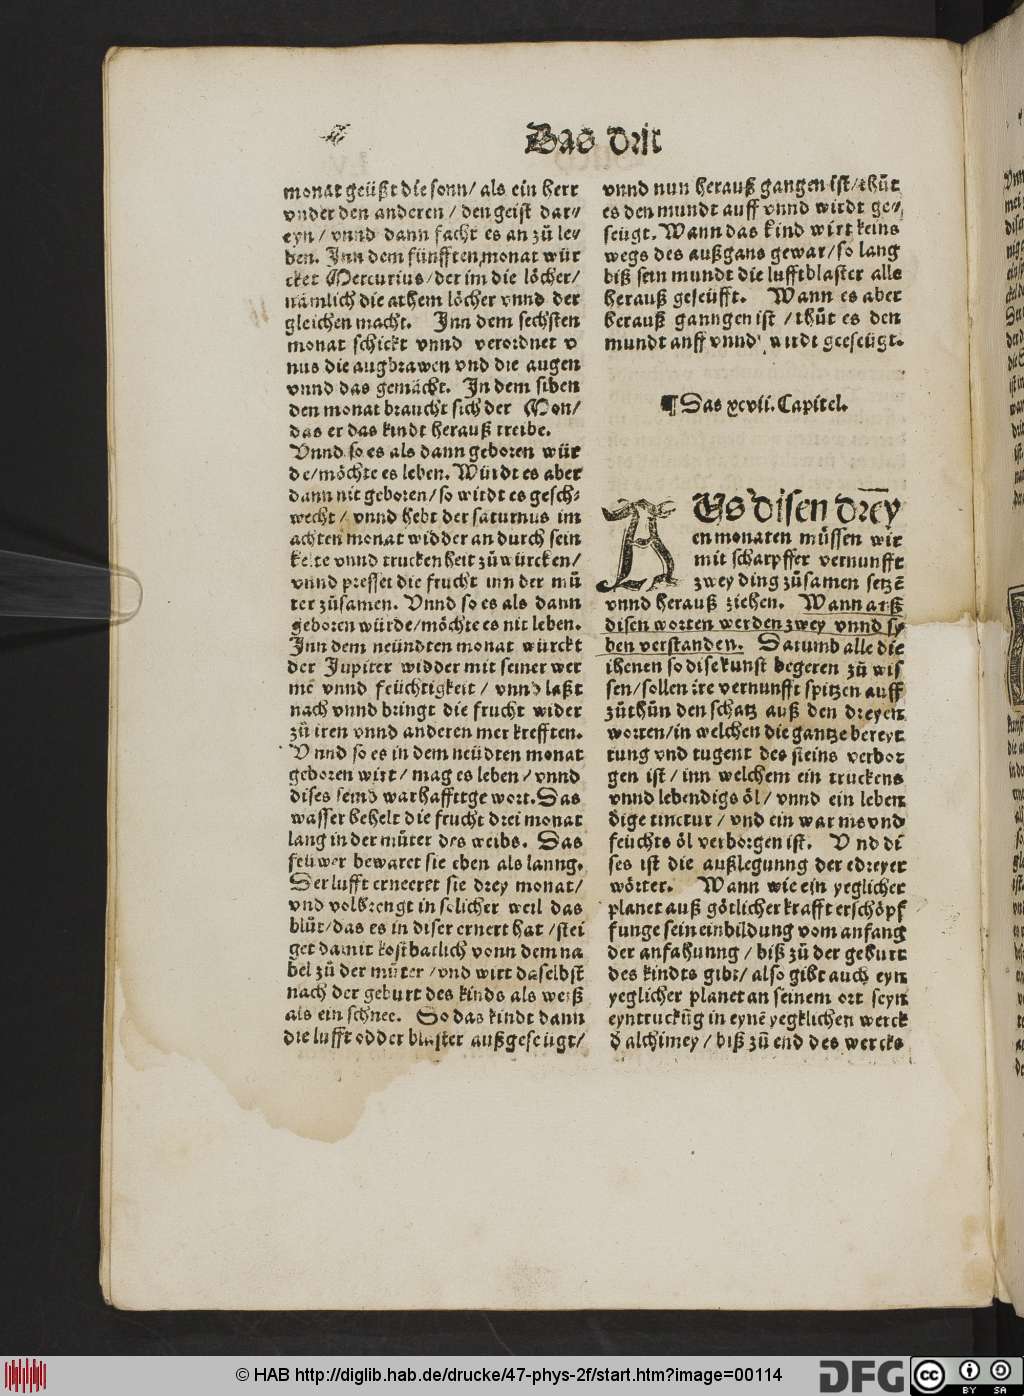 Das drit
monat geüßt die sonn/ als ein herr
vnder den anderen / den geist dar⸗
eyn / vnnd dann facht es an zů le⸗
ben. Inn dem fünfften monat wür
cket Mercurius/der im die löcher/
nämlich die athem löcher vnnd der
gleichen macht. Inn dem sechsten
monat schickt vnnd verordnet v
nus die augbrawen vnd die augen
vnnd das gemächt. In dem siben
den monat braucht sich der Mon/
das er das kindt herauß treibe.
Vnnd so es als dann geboren wür
de/möchte es leben. Würdt es aber
dann nit geboren/so wirdt es gesch⸗
wecht / vnnd hebt der saturnus im
achten monat widder an durch sein
kelte vnnd trucken heit zů würcken/
vnnd presset die frucht inn der mů
ter zůsamen. Vnnd so es als dann
geboren würde/möchte es nit leben.
Inn dem neündten monat würckt
der Jupiter widder mit seiner wer
mē vnnd feüchtigkeit / vnnd laßt
nach vnnd bringt die frucht wider
zů iren vnnd anderen mer krefften.
Vnnd so es in dem neüdten monat
geboren wirt / mag es leben / vnnd
dises seind warhafftige wort. Das
wasser behelt die frucht drei monat
lang in der můter des weibs. Das
feüwer bewaret sie eben als lanng.
Der lufft erneeret sie drey monat/
vnd volbrengt in solicher weil das
blůt/das es in diser ernert hat /stei
get damit kostbarlich vonn dem na
bel zů der můter /vnd wirt daselbst
nach der geburt des kinds als weiß
als ein schnee. So das kindt dann
die lufft odder blaster außgeseügt/
vnnd nun herauß gangen ist/thůt
es den mundt auff vnnd wirdt ge⸗
seügt. Wann das kind wirt keins
wegs des außgans gewar/so lang
biß sein mundt die lufftblaster alle
herauß geseüfft. Wann es aber
herauß ganngen ist /thůt es den
mundt anff vnnd wirdt geeseügt.
¶Das xcvii. Capitel.
AUs disen drēy
en monaten müssen wir
mit scharpffer vernunfft
zwey ding zůsamen setzē
vnnd herauß ziehen. Wann auß
disen worten werden zwey vnnd sy
ben verstanden. Darumb alle die
ihenen so dise kunst begeren zů wis
sen/sollen ire vernunfft spitzen auff
zůthůn den schatz auß den dreyen
worten/in welchen die gantze bereyt
tung vnd tugent des steins verbor
gen ist / inn welchem ein truckens
vnnd lebendigs öl/ vnnd ein leben
dige tinctur / vnd ein warms vnd
feüchts öl verborgen ist. Vnd di
ses ist die außlegunng der edreyer
wörter. Wann wie ein yeglicher
planet auß götlicher krafft erschöpf
funge sein einbildung vom anfang
der anfahunng / biß zů der geburt
des kindts gibt/ also gibt auch eyn
yeglicher planet an seinem ort seyn
eyntruckūg in eynē yegklichen werck
d̄ alchimey / biß zů end des wercks
© HAB http://diglib.hab.de/drucke/47-phys-2f/start.htm?image=00114
DFG
cc
BY SA